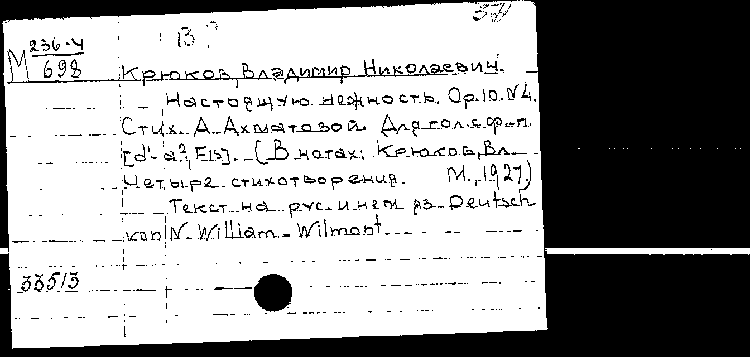 3-Я
В?
М 236-4
698
Крюков, Владимир Николаевич.
Настоящую нежность. Op.10.N4.
Стих. А. Ахматовой. Для гол. с ф-п.
[d'-a², Es]. (В нотах: Крюков, Вл.
Четыре стихотворения. М., 1927)
Текст на рус. и нем. яз. Deutsch
von N. William-Wilmont.
33513